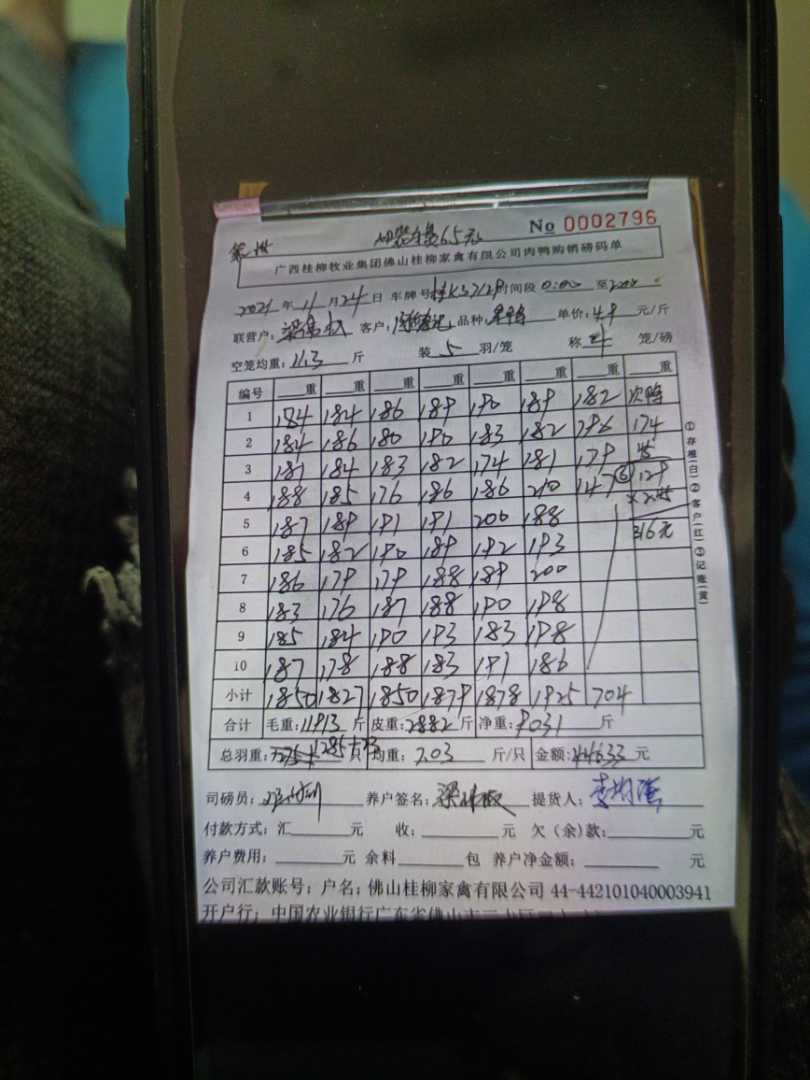 No 0002796
广西桂柳牧业集团佛山桂柳家禽有限公司肉鸭购销磅码单
2021 年 11 月 24 日 车牌号 时间段 0:00 至 2:00
联营户: 客户: 品种: 单价: 4.9 元/斤
空笼均重: 11.3 斤 装 5 羽/笼 称 笼/磅
编号 重 重 重 重 重 重 重 重
1 184 184 186 189 190 189 182 次鸭
2 184 186 180 190 183 182 196 174
3 181 184 183 182 174 181 179 45
4 188 185 176 186 186 210 147 ⑥ 129
5 187 189 191 191 200 188 × 2.45
6 185 182 190 189 192 193 316元
7 186 179 179 188 189 200
8 183 176 187 188 190 198
9 185 184 190 193 183 198
10 187 178 188 183 191 186
小计 1850 1827 1850 1879 1878 1925 704
合计 毛重: 11913 斤 皮重: 2882 斤 净重: 9031 斤
总羽重: 1285 只 均重: 7.03 斤/只 金额: 44633 元
司磅员: 养户签名: 提货人:
付款方式: 汇 元 收: 元 欠(余)款: 元
养户费用: 元 余料 包 养户净金额: 元
公司汇款账号: 户名: 佛山桂柳家禽有限公司 44-442101040003941
开户行: 中国农业银行广东省佛山市三水区
①存根(白)②客户(红)③记账(黄)